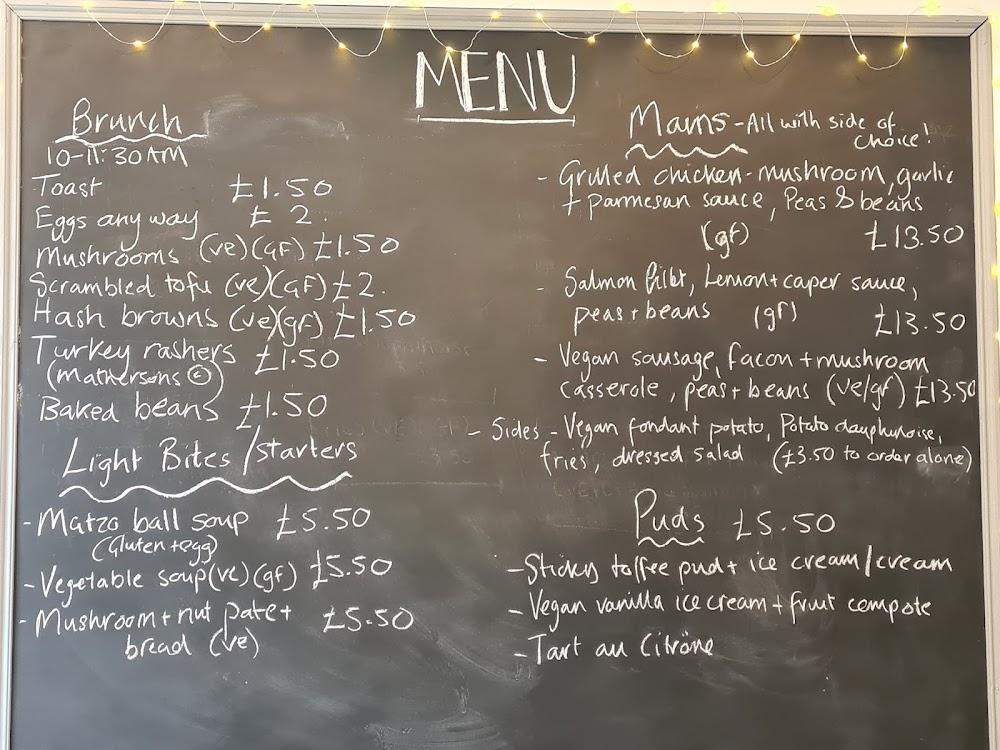 MENU
Brunch
10-11:30AM
Toast £1.50
Eggs any way £2.
Mushrooms (ve)(GF) £1.50
Scrambled tofu (ve)(GF) £2.
Hash browns (ve)(gf) £1.50
Turkey rashers £1.50
(Mathersons ©)
Baked beans £1.50
Light Bites/starters
- Matzo ball soup £5.50
(Gluten + egg)
- Vegetable soup (ve)(gf) £5.50
- Mushroom + nut pate + £5.50
bread (ve)
Mains - All with side of
choice!
- Grilled chicken - mushroom, garlic
+ parmesan sauce, Peas & beans
(gf) £13.50
- Salmon fillet, Lemon + caper sauce,
peas + beans (gf) £13.50
- Vegan sausage, facon + mushroom
casserole, peas + beans (ve/gf) £13.50
- Sides - Vegan fondant potato, Potato dauphinoise,
fries, dressed salad (£3.50 to order alone)
Puds £5.50
- Sticky toffee pud + ice cream/cream
- Vegan vanilla ice cream + fruit compote
- Tart au Citrône